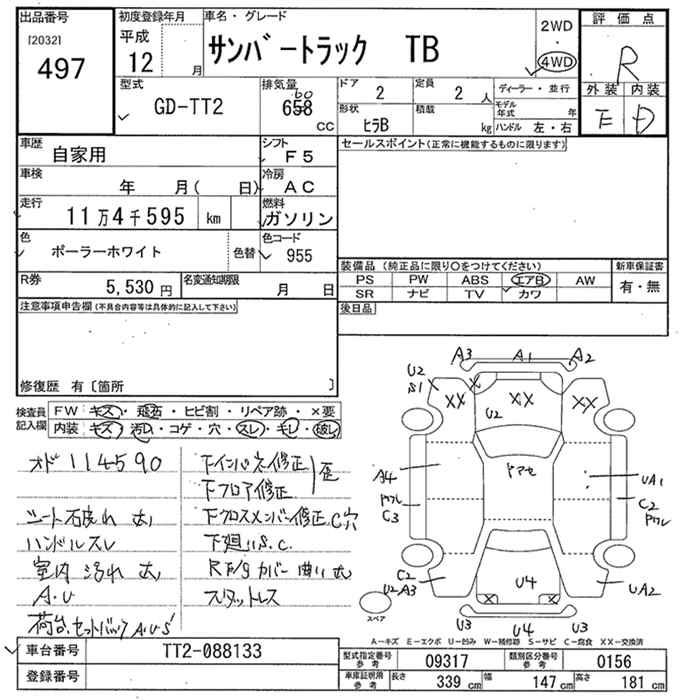 出品番号 初度登録年月 車名・グレード 評価点
[2032] 497
平成 12 月
サンバートラック TB
2WD
4WD
R
外装 内装
E D
型式 GD-TT2
排気量 660 658 CC
ドア 2
定員 2 人
ディーラー・並行
形状 ヒラB
積載 kg
モデル年式 年
ハンドル 左・右
車歴 自家用
シフト F5
セールスポイント(正常に機能するものに限ります)
車検 年 月( 日)
冷房 AC
走行 11万4千595 km
燃料 ガソリン
色 ポーラーホワイト 色替
色コード 955
装備品(純正品に限り○をつけてください) 新車保証書
PS PW ABS エアB AW
SR ナビ TV カワ
有・無
R券 5,530円
名変通知期限 月 日
後日品
注意事項申告欄(不具合内容等は具体的に記入して下さい)
修復歴 有〔箇所 〕
検査員記入欄
FW キズ・飛石・ヒビ割・リペア跡・×要
内装 キズ・汚れ・コゲ・穴・スレ・キレ・破れ
オド 114590
シート破れ 大
ハンドルスレ
室内汚れ 大
A.U
荷台、セットバック A.US
下インパネ修正 歪
下フロア修正
下クロスメンバー修正 C穴
下廻りS.C
スタットレス
A3 A1 A2
U2
S1
XX XX XX
U2
ドアセ
A4
C3
UA1
C2
C2
U2
A3
U4
XX XX
UA2
U3 U4 U3
スペア
A-キズ E-エクボ U-凹み W-補修跡 S-サビ C-腐食 XX-交換済
車台番号 TT2-088133
登録番号
型式指定番号 参考 09317
類別区分番号 参考 0156
車庫証明用 参考 長さ 339 cm 幅 147 cm 高さ 181 cm